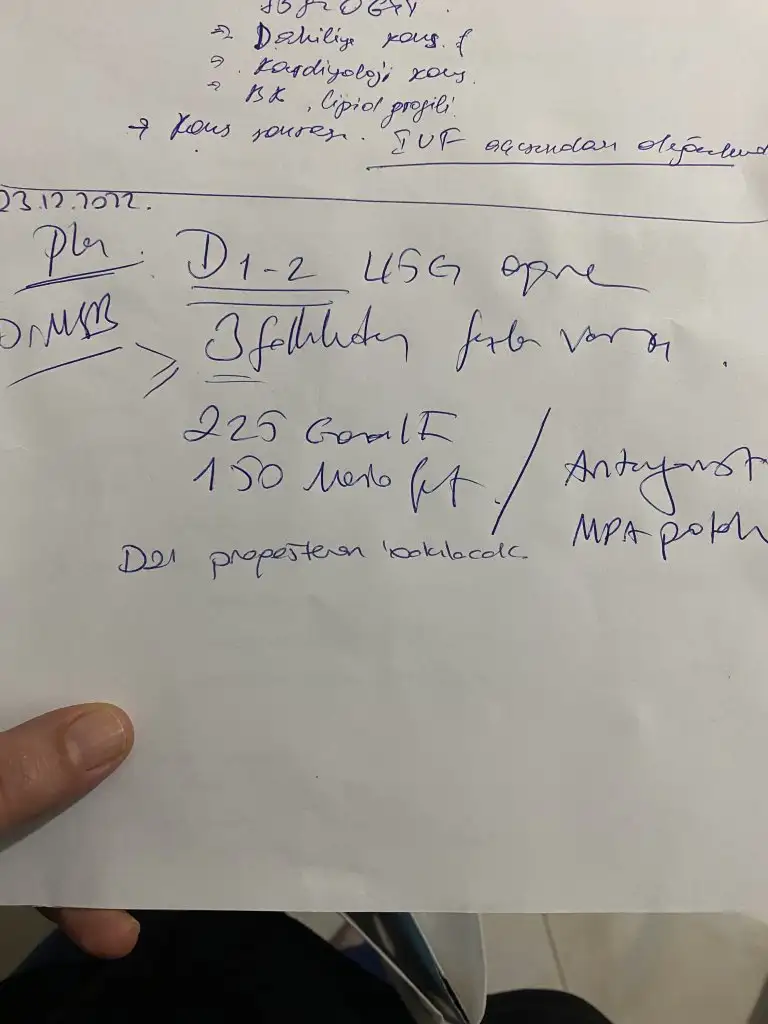 → Dahiliye kons.
→ Kardiyoloji kons.
→ BK, lipid profili
→ Kons sonrası. IVF açısından
23.12.2022.
Plan: D1-2 USG
3 folikülden fazla varsa.
225 Gonal F
150 Merio fert /
Antagonist
MPA
D21 progesteron bakılacak.